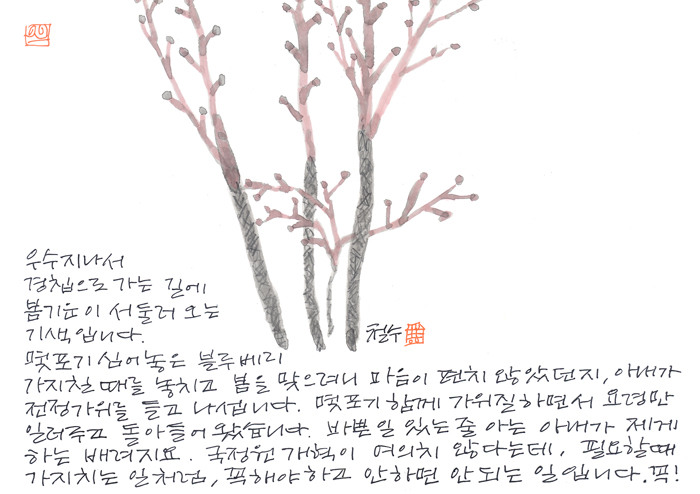 우수지나서
경칩으로 가는 길에
봄기운이 서둘러 오는
기색입니다.
철수
몇포기 심어놓은 블루베리
가지칠때를 놓치고 봄을 맞으려니 마음이 편치 않았던지, 아내가
전정가위를 들고 나섭니다. 몇포기 함께 가위질하면서 요령만
일러주고 돌아들어왔습니다. 바쁜일 있는줄 아는 아내가 제게
하는 배려지요. 국정원 개혁이 여의치 않다는데, 필요할때
가지치는 일처럼, 꼭해야하고 안하면 안되는 일입니다. 꼭!